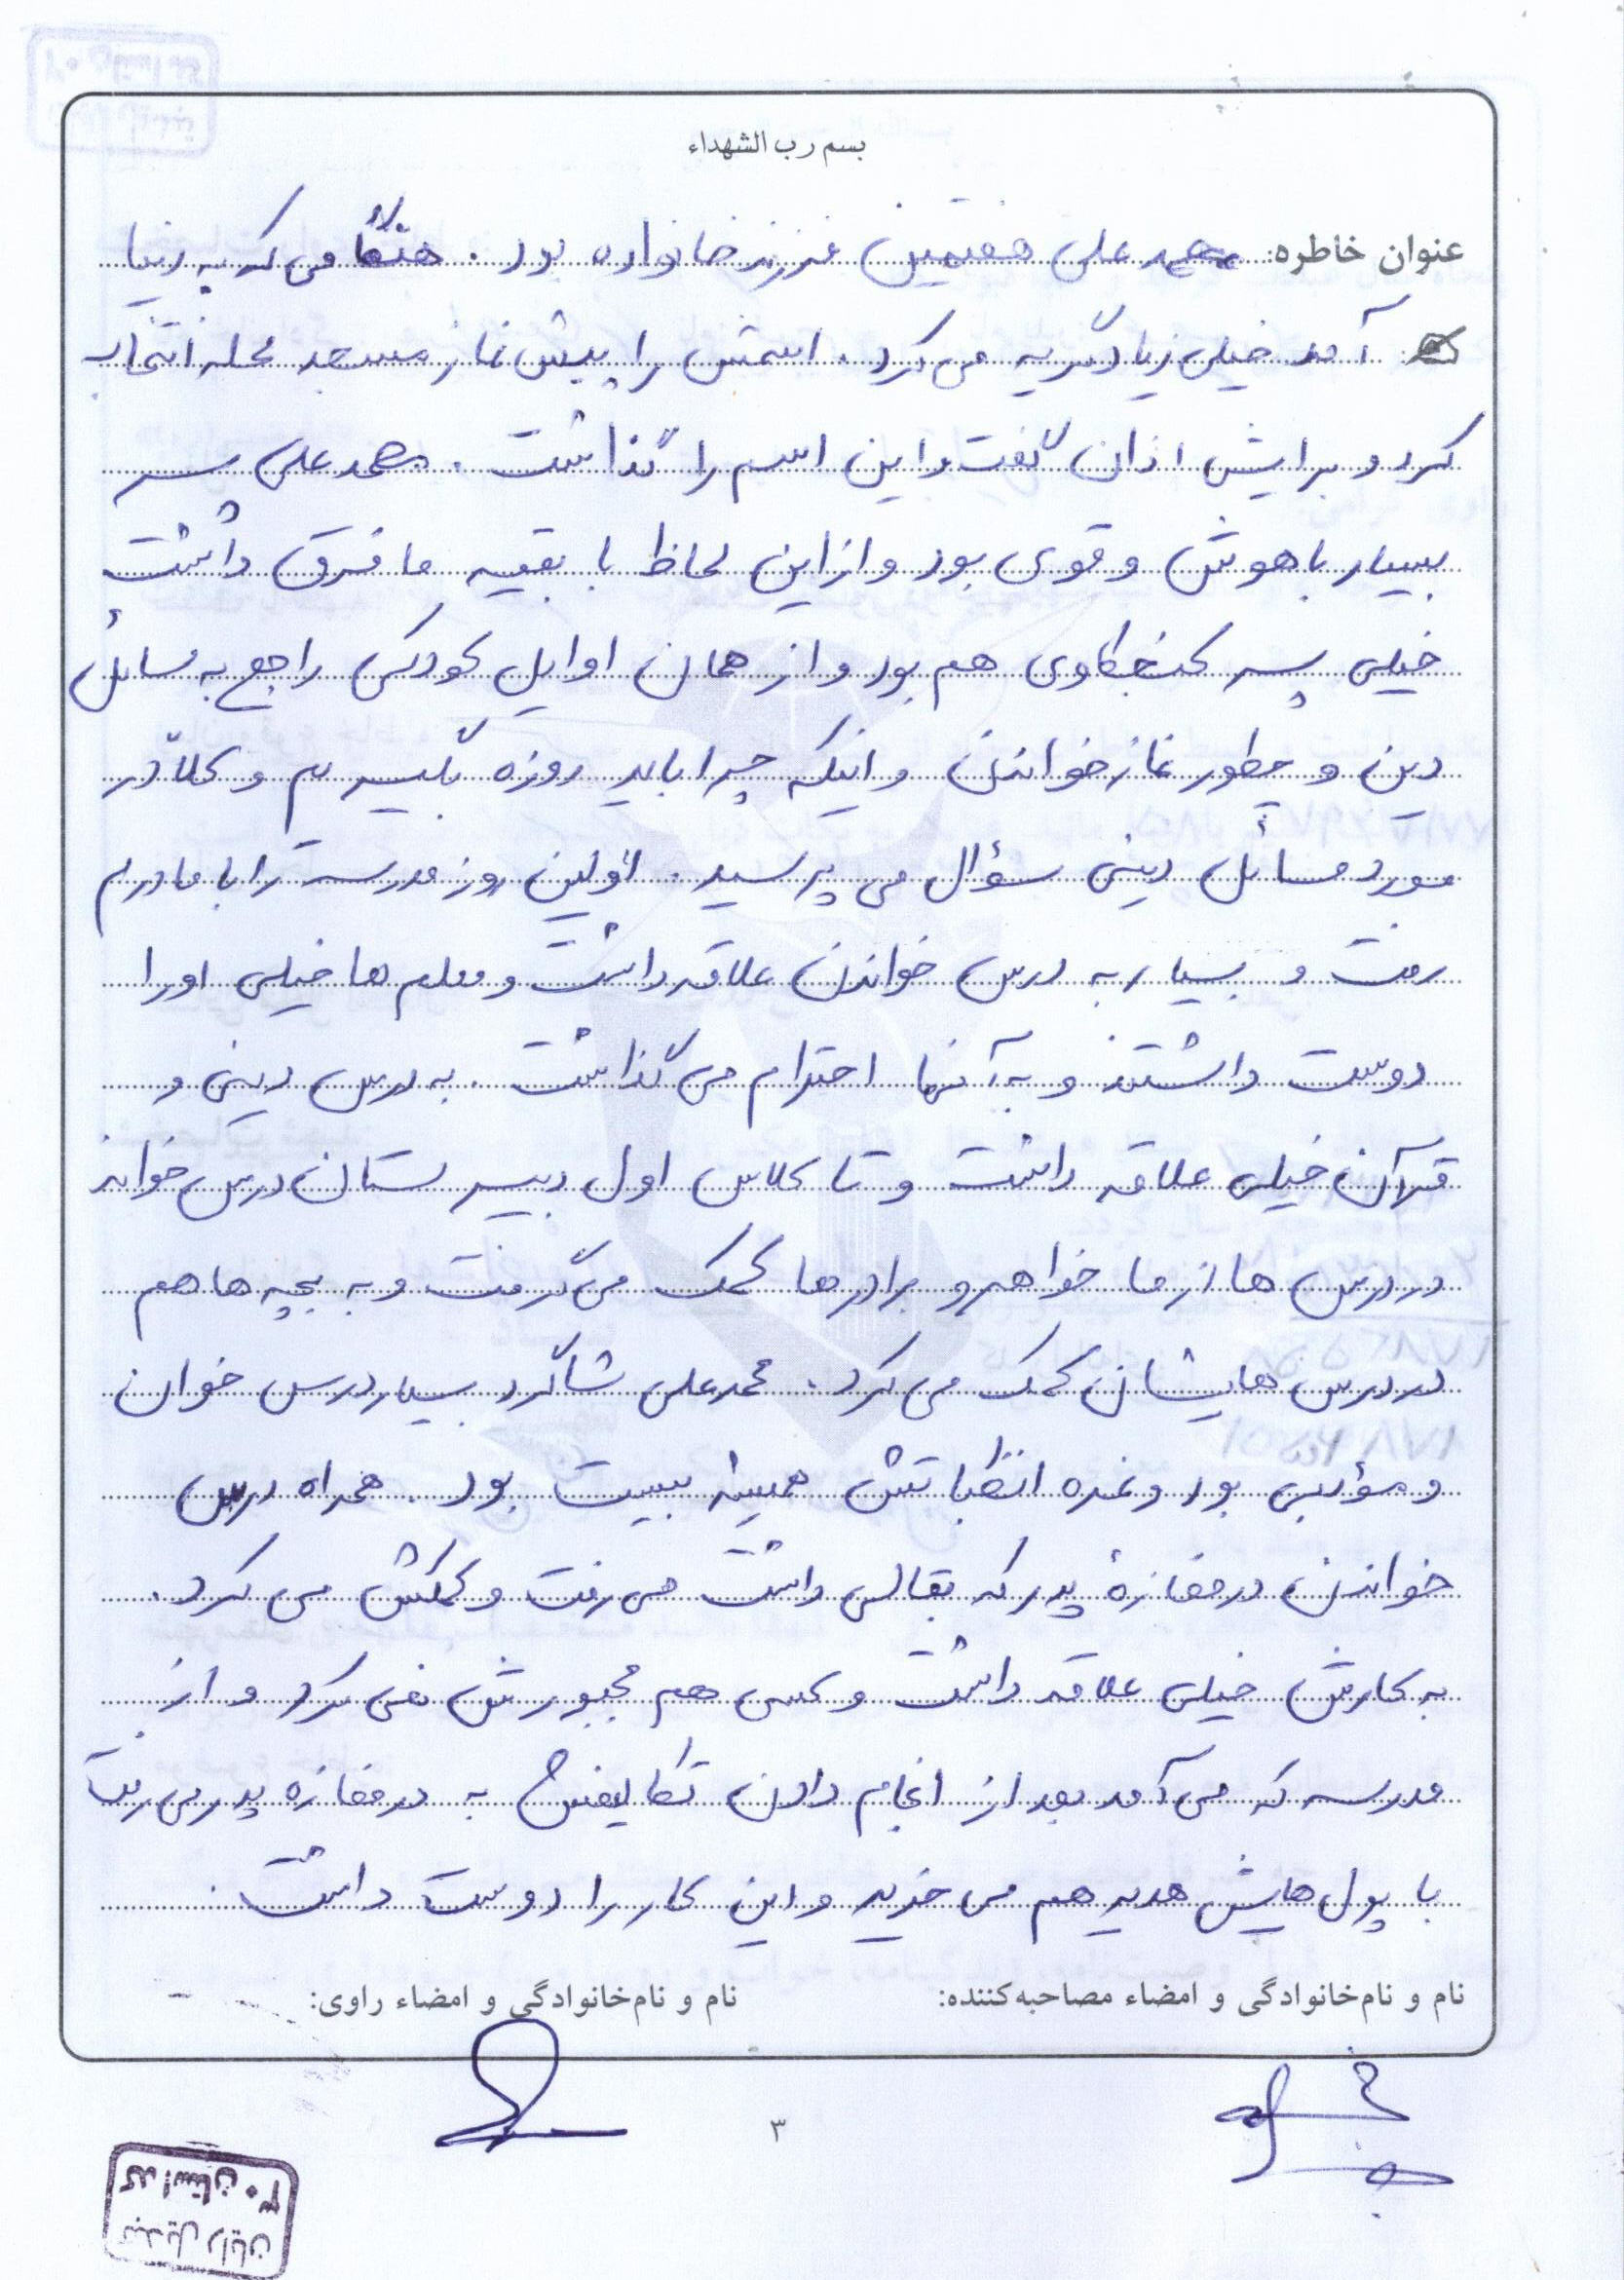 بسم رب الشهداء
عنوان خاطره: محمد علی هفتمین فرزند خانواده بود. هنگامی که به دنیا
آمد خیلی زیاد گریه می کرد. اسمش را پیش نماز مسجد محله انتخاب
کرد و برایش اذان گفت و این اسم را گذاشت. محمد علی پسر
بسیار باهوش و قوی بود و از این لحاظ با بقیه ما فرق داشت
خیلی پسر کنجکاوی هم بود و از همان اوایل کودکی راجع به مسائل
دین و چطور نماز خواندن و اینکه چرا باید روزه بگیریم و کلاً در
مورد مسائل دینی سؤال می پرسید. اولین روز مدرسه را با مادرم
رفت و بسیار به درس خواندن علاقه داشت و معلم ها خیلی او را
دوست داشتند و به آنها احترام می گذاشت. به درس دینی و
قرآن خیلی علاقه داشت و تا کلاس اول دبیرستان درس خواند
در درس ها از ما خواهر و برادرها کمک می گرفت و به بچه ها هم
در درس هایشان کمک می کرد. محمد علی شاگرد بسیار درس خوان
و مؤدبی بود و نمره انظباتش همیشه بیست بود. همراه درس
خواندن در مغازهٔ پدر که بقالی داشت می رفت و کمکش می کرد.
به کارش خیلی علاقه داشت و کسی هم مجبورش نمی کرد و از
مدرسه که می آمد بعد از انجام دادن تکالیفش به در مغازه پدر می رفت
با پول هایش هدیه هم می خرید و این کار را دوست داشت.
نام و نام‌خانوادگی و امضاء مصاحبه‌کننده: نام و نام‌خانوادگی و امضاء راوی:
۳
تبدیل رایان
کد استان ۳۰